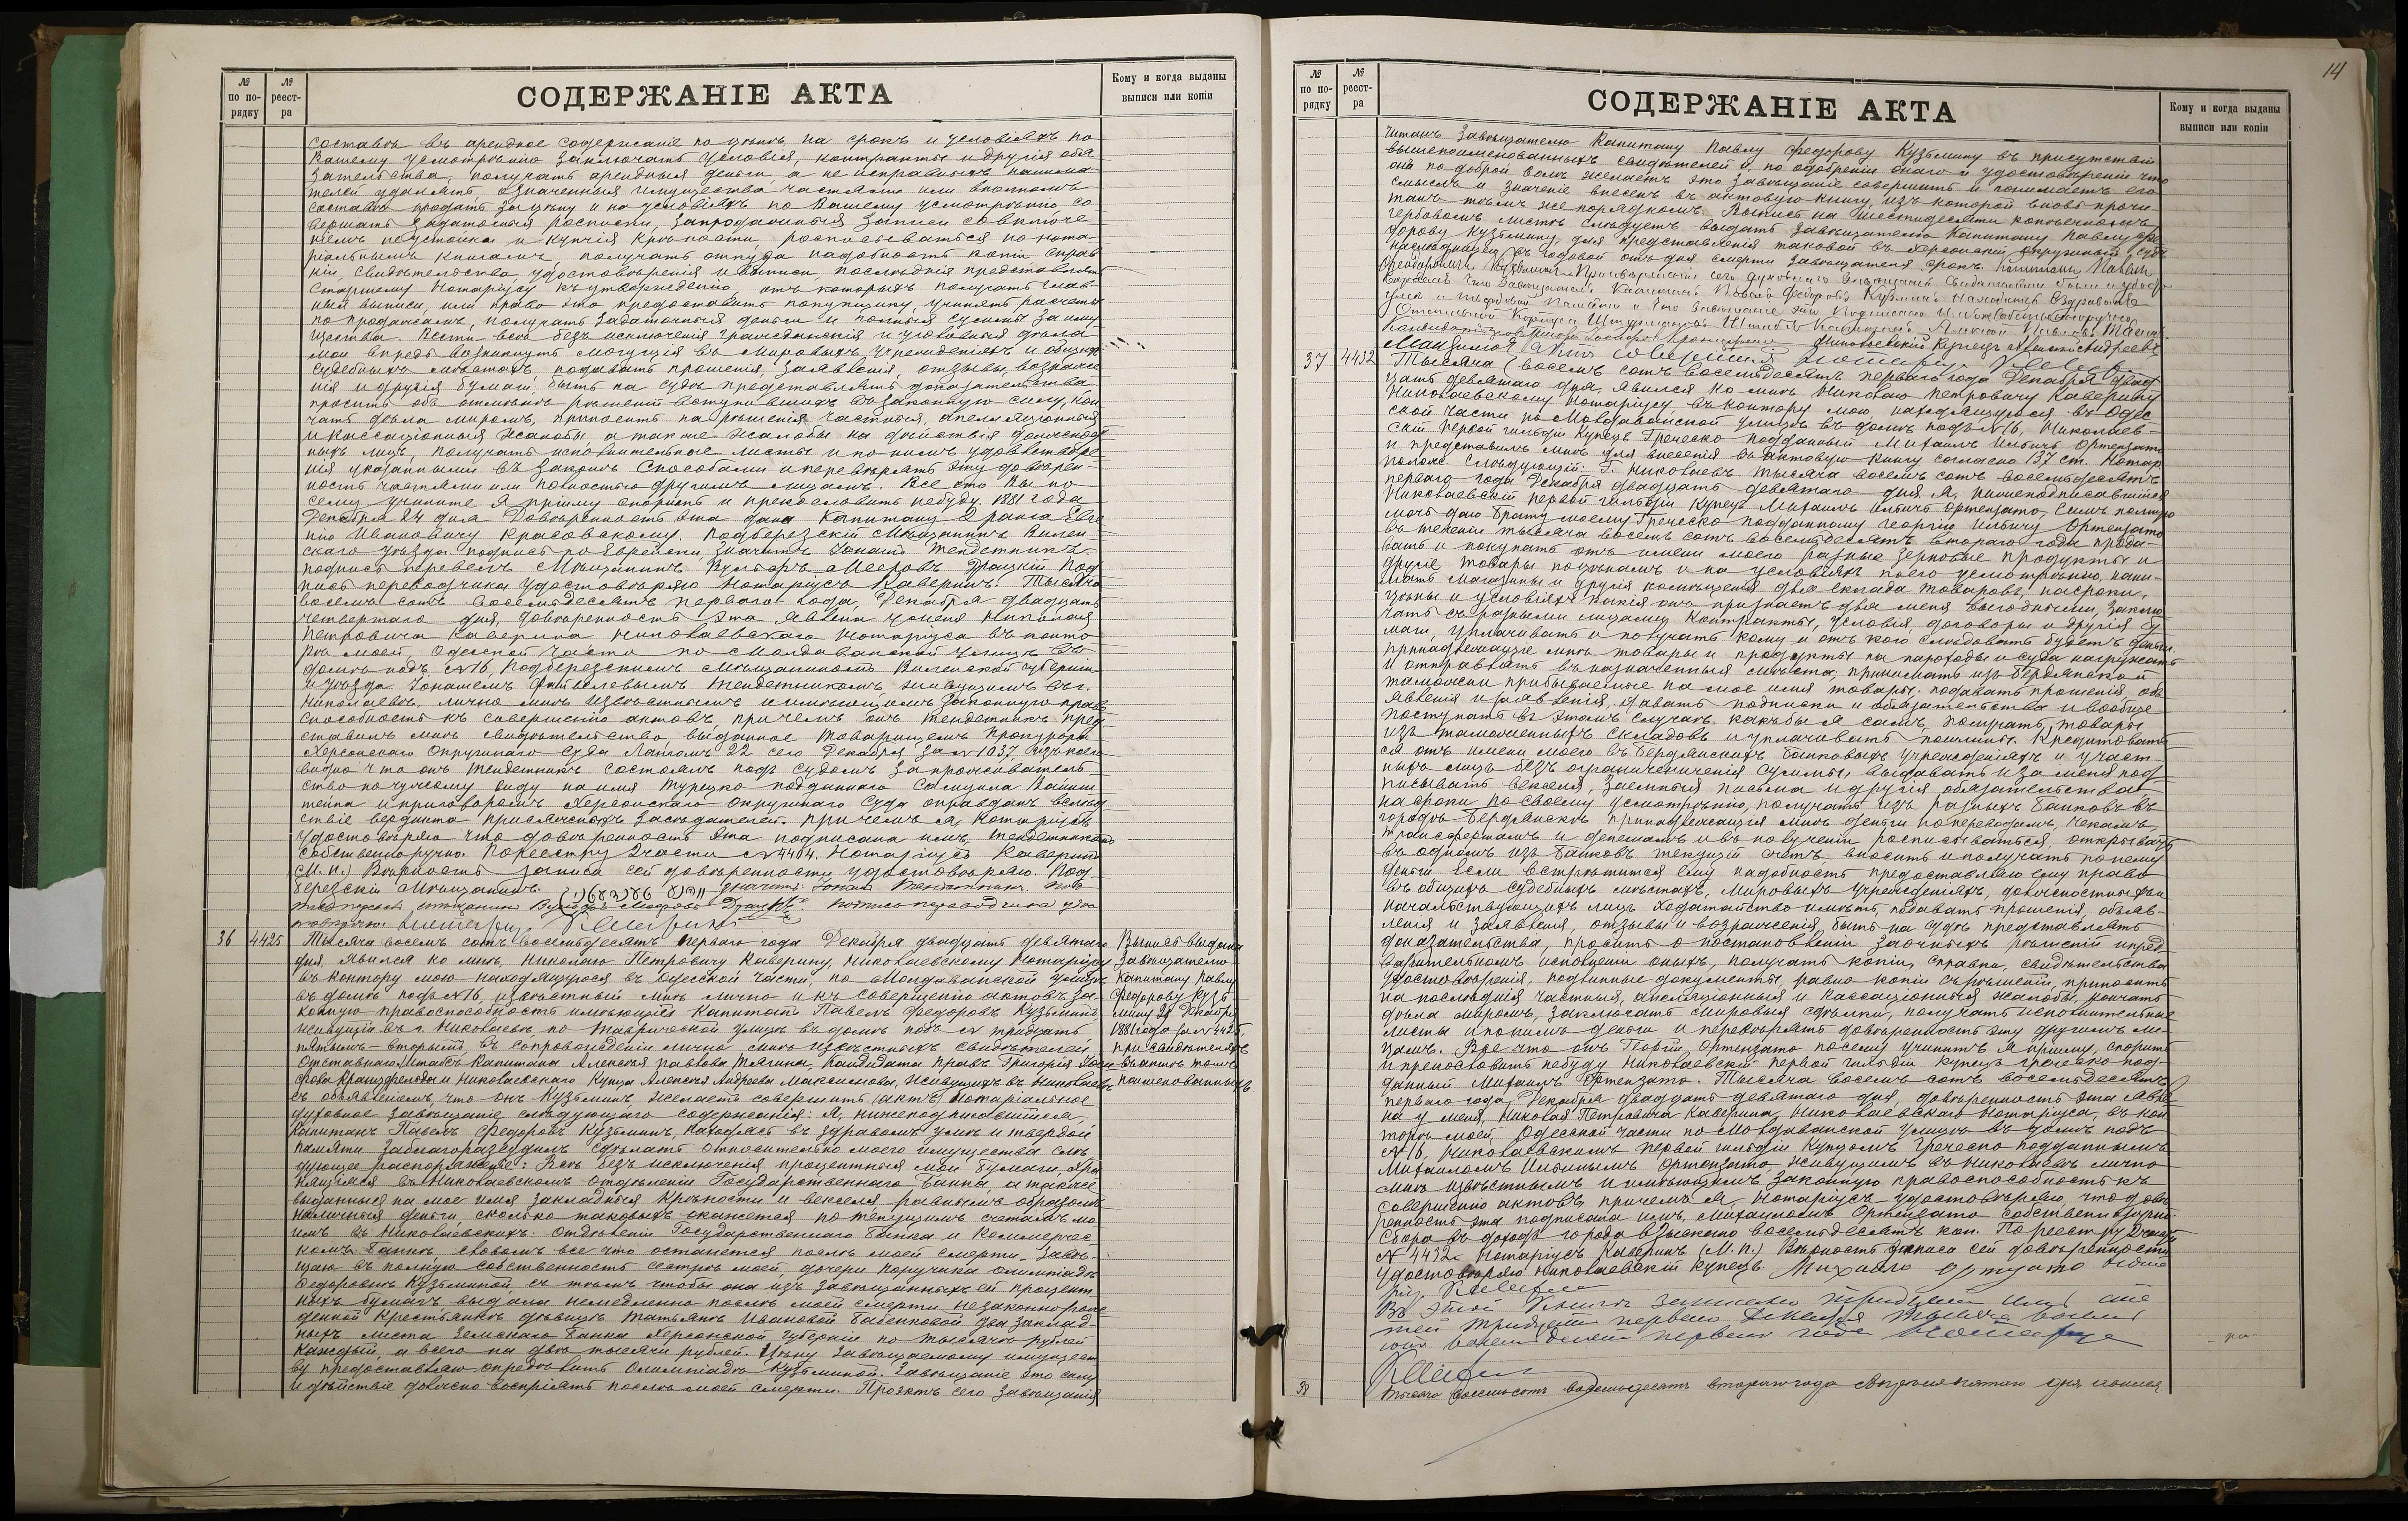 № по по- рядку
№ реест- ра
СОДЕРЖАНІЕ АКТА
Кому и когда выданы выписи или копіи
составѣ въ арендное содержаніе по цѣнѣ, на срокъ и условіяхъ по
Вашему усмотрѣнію заключать условія, контракты и другія обя-
зательства, получать арендныя деньги, а не исправныхъ нанима-
телей удалять, означенныя имущества частями или въ полномъ
составѣ продать за цѣну и на условіяхъ по Вашему усмотрѣнію со-
вершать задаточныя росписки, запродажныя записи со включе-
ніемъ неустойки и купчія крѣпости, росписываться по нота-
ріальнымъ книгамъ, получать откуда надобность копіи справ-
ки, свидѣтельства удостовѣренія и выписи, послѣднія представлять
Старшему Нотаріусу къ утвержденію, отъ которыхъ получать глав-
ныя выписи, или право это предоставить покупщику, учинять расчеты
по продажамъ, получать задаточныя деньги и полныя суммы за иму-
щества. Вести всѣ безъ исключенія гражданскія и уголовныя дѣла
мои впредь возникнуть могущія въ мировыхъ учрежденіяхъ и общихъ
судебныхъ мѣстахъ, подавать прошенія, заявленія, отзывы, возраже-
нія и другія бумаги, быть на судѣ представлять доказательства
просить объ отмѣнѣ рѣшеній вступившихъ въ законную силу, кон-
чать дѣла миромъ, приносить на рѣшенія частныя, апелляціонныя
и кассаціонныя жалобы, а также жалобы на дѣйствія должност-
ныхъ лицъ, получать исполнительные листы и по нимъ удовлетворе-
нія указанными въ законѣ способами и перевѣрять эту довѣрен-
ность частями или полностью другимъ лицамъ. Все что Вы по
сему учините я приму спорить и прекословить небуду. 1881 года
Декабря 24 дня. Довѣренность эта дана Капитану 2 ранга Евге-
нію Ивановичу Красовскому. Подберезскій Мѣщанинъ Вилен-
скаго уѣзда подпись по Еврейски, значитъ Іонашъ Тендетникъ
подпись перевелъ Мѣщанинъ Вульфъ Мееровъ Драцкій. Под-
пись переводчика удостовѣряю Нотаріусъ Каверинъ. Тысяча
восемь сотъ восемьдесятъ перваго года, Декабря двадцать
четвертаго дня, довѣренность эта явлена у меня Николая
Петровича Каверина Николаевскаго Нотаріуса въ конто-
рѣ моей, Одесской части по Молдаванской улицѣ въ
домѣ подъ №16, Подберезскимъ Мѣщаниномъ Виленской губерніи
и уѣзда Іонашемъ Тендетникомъ живущимъ въ г.
Николаевѣ, лично мнѣ извѣстнымъ и имѣющимъ законную право-
способность къ совершенію актовъ, причемъ онъ Тендетникъ пред-
ставилъ мнѣ свидѣтельство, выданное Товарищемъ Прокурора
Херсонскаго Окружнаго Суда 22 сего Декабря за №1037 изъ коего
видно что онъ Тендетникъ состоялъ подъ судомъ за проживатель-
ство по чужому виду на имя Турецко подданнаго Самуила
и приговоромъ Херсонскаго Окружнаго Суда оправданъ вслѣд-
ствіе вердикта присяжныхъ засѣдателей. При чемъ я, Нотаріусъ
удостовѣряю что довѣренность эта подписана имъ, Тендетникомъ
собственноручно. По реестру 2 части №4404. Нотаріусъ Каверинъ
(М.П.) Вѣрность записи сей довѣренности удостовѣряю. Под-
березскій Мѣщанинъ значитъ: Іонашъ Тендетникъ
36 4425 Тысяча восемь сотъ восемьдесятъ перваго года Декабря двадцать девятаго
дня, явился ко мнѣ, Николаю Петровичу Каверину, Николаевскому Нотаріусу
въ контору мою находящуюся въ Одесской части, по Молдаванской улицѣ
въ домѣ подъ №16, извѣстный мнѣ лично и къ совершенію актовъ за-
конную правоспособность имѣющій Капитанъ Павелъ Федоровъ Кузьминъ
живущій въ г. Николаевѣ по Таврической улицѣ въ домѣ подъ № тридцать
въ сопровожденіи лично мнѣ извѣстныхъ свидѣтелей
Отставнаго Штабсъ Капитана Алексѣя Павлова Тягина, Кандидата Правъ Григорія
и Николаевскаго Купца Алексѣя Андреева Максимова, живущихъ въ Николаевѣ
съ объявленіемъ, что онъ Кузьминъ желаетъ совершить (актъ) нотаріальное
духовное завѣщаніе слѣдующаго содержанія: Я, нижеподписавшійся,
Капитанъ Павелъ Федоровъ Кузьминъ, находясь въ здравомъ умѣ и твердой
памяти заблагоразсудилъ сдѣлать относительно моего имущества слѣ-
дующее распоряженіе: Всѣ безъ исключенія процентныя мои бумаги, хра-
нящіяся въ Николаевскомъ отдѣленіи Государственнаго Банка, а также
выданныя на мое имя закладныя крѣпости и векселя, равнымъ образомъ
наличныя деньги сколько таковыхъ окажется по текущимъ счетамъ мо-
имъ въ Николаевскихъ: Отдѣленіи Государственнаго Банка и Коммерчес-
комъ Банкѣ, словомъ все что останется послѣ моей смерти, завѣ-
щаю въ полную собственность сестрѣ моей, дочери Поручика Олимпіадѣ
Федоровнѣ Кузьминой, съ тѣмъ чтобы она изъ завѣщанныхъ ей процент-
ныхъ бумагъ выдала немедленно послѣ моей смерти незаконнорож-
денной Крестьянкѣ дѣвицѣ Татьянѣ Ивановой Бабенковой два заклад-
ныхъ листа Земскаго Банка Херсонской Губерніи по тысячѣ рублей
каждый, а всего на двѣ тысячи рублей. Цѣну завѣщаемому имущест-
ву предоставляю опредѣлить Олимпіадѣ Кузьминой. Завѣщаніе это силу
и дѣйствіе должно воспріять послѣ моей смерти. Проэктъ сего завѣщанія
Выпись выдана
Завѣщателю
Капитану Павлу
Федорову Кузь-
мину 29 Декабря
1881 года за №4425
при свидѣтеляхъ
въ актѣ томъ
поименованныхъ
14
№ по по- рядку
№ реест- ра
СОДЕРЖАНІЕ АКТА
Кому и когда выданы выписи или копіи
читанъ Завѣщателю Капитану Павлу Федорову Кузьмину въ присутствіи
вышепоименованныхъ свидѣтелей и, по одобреніи онаго и удостовѣреніи что
онъ по доброй волѣ желаетъ это завѣщаніе совершить и понимаетъ его
смыслъ и значеніе внесенъ въ актовую книгу, изъ которой вновь прочи-
танъ тѣмъ же порядкомъ. Выпись на шестидесяти копѣечномъ
гербовомъ листѣ слѣдуетъ выдать завѣщателю Капитану Павлу Фе-
дорову Кузьмину, для представленія таковой въ Херсонскій Окружный Судъ
въ годовой отъ дня смерти завѣщателя срокъ. Капитанъ Павелъ
что Завѣщатель Капитанъ Павелъ Федоровъ Кузьминъ находится въ здравомъ
умѣ и твердой памяти и что завѣщаніе это подписано имъ собственноручно
Штабсъ Капитанъ Алексѣй Павловъ Тягинъ
Николаевскій Купецъ Алексѣй Андреевъ
Максимовъ
37 4432 Тысяча восемь сотъ восемьдесятъ перваго года Декабря двад-
цать девятаго дня, явился ко мнѣ Николаю Петровичу Каверину
Николаевскому Нотаріусу, въ контору мою, находящуюся въ Одес-
ской части по Молдаванской улицѣ въ домѣ подъ №16, Николаев-
скій первой гильдіи Купецъ Греческо подданный Михаилъ Ильичъ Ортензато
и представилъ мнѣ для внесенія въ актовую книгу согласно 137 ст. Нотар.
полож. слѣдующій: Г. Николаевъ. Тысяча восемь сотъ восемьдесятъ
перваго года Декабря двадцать девятаго дня. Я, нижеподписавшійся
Николаевскій первой гильдіи Купецъ Михаилъ Ильичъ Ортензато, симъ полную
мочь даю брату моему Греческо подданному Георгію Ильичу Ортензато
въ теченіи тысяча восемь сотъ восемьдесятъ втораго года прода-
вать и покупать отъ имени моего разные зерновые продукты и
другіе товары по цѣнамъ и на условіяхъ по его усмотрѣнію, нани-
мать магазины и другія помѣщенія для склада товаровъ, на сроки,
цѣны и условіяхъ какія онъ признаетъ для меня выгодными, заклю-
чать съ разными лицами контракты, условія, договоры и другія бу-
маги, уплачивать и получать кому и отъ кого слѣдовать будетъ деньги
принадлежащіе мнѣ товары и продукты на пароходы и суда нагружать
и отправлять въ назначенныя мѣста; принимать изъ Бердянской
таможни прибываемые на мое имя товары, подавать прошенія, объ-
явленія и заявленія, давать подписки и обязательства и вообще
поступать въ этомъ случаѣ какъ бы я самъ, получать товары
изъ таможенныхъ складовъ и уплачивать пошлины. Кредитовать-
ся отъ имени моего въ Бердянскихъ банковыхъ учрежденіяхъ и у част-
ныхъ лицъ безъ ограниченія суммы, выдавать и за меня под-
писывать векселя, заемныя письма и другія обязательства
на сроки по своему усмотрѣнію, получать изъ разныхъ банковъ въ
городѣ Бердянскѣ принадлежащія мнѣ деньги по переводамъ, чекамъ
трансфертамъ и депешамъ и въ полученіи росписываться, открывать
въ одномъ изъ банковъ текущій счетъ, вносить и получать по нему
деньги если встрѣтится ему надобность предоставляю ему право
въ общихъ судебныхъ мѣстахъ, мировыхъ учрежденіяхъ, должностныхъ и
начальствующихъ лицъ ходатайство имѣть, подавать прошенія, объяв-
ленія и заявленія, отзывы и возраженія быть на судѣ представлять
доказательства, просить о постановленіи заочныхъ рѣшеній и пред-
варительномъ исполненіи оныхъ, получать копіи, справки, свидѣтельства
удостовѣренія, подлинные документы, равно копіи съ рѣшеній, приносить
на послѣднія частныя, апелляціонныя и кассаціонныя жалобы, кончать
дѣла миромъ, заключать мировыя сдѣлки, получать исполнительные
листы и по нимъ деньги и перевѣрять довѣренность эту другимъ ли-
цамъ. Все что онъ Георгій Ортензато по сему учинитъ я приму, спорить
и прекословить небуду Николаевскій первой гильдіи Купецъ Греческо под-
данный Михаилъ Ортензато. Тысяча восемь сотъ восемьдесятъ
перваго года, Декабря двадцать девятаго дня, довѣренность эта явле-
на у меня, Николая Петровича Каверина, Николаевскаго Нотаріуса, въ кон-
торѣ моей, Одесской части по Молдаванской улицѣ въ домѣ подъ
№16, Николаевскимъ первой гильдіи Купцомъ Греческо подданнымъ
Михаиломъ Ильинымъ Ортензато, живущимъ въ Николаевѣ лично
мнѣ извѣстнымъ и имѣющимъ законную правоспособность къ
совершенію актовъ, причемъ я, Нотаріусъ удостовѣряю что довѣ-
ренность эта подписана имъ, Михаиломъ Ортензато собственноручно.
Сбора въ доходъ города взыскано восемьдесятъ коп. По реестру 2 части
№ 4432. Нотаріусъ Каверинъ (М.П.) Вѣрность записи сей довѣренности
удостовѣряю Николаевскій купецъ
Въ этой книгѣ записано тридцать семь ак-
товъ тридцать перваго Декабря тысяча восемь
сотъ восемьдесятъ перваго года Нотаріусъ
38 Тысяча восемьсотъ восемьдесятъ втораго года дня явился